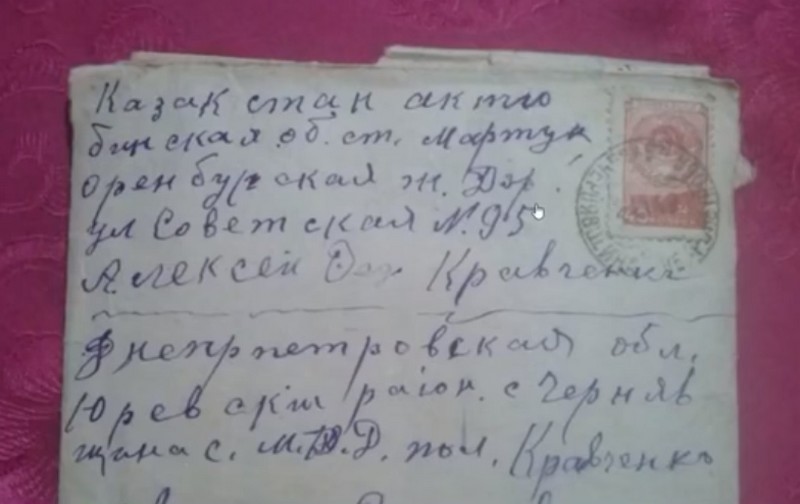 Казак стан актю
бинская об. ст. Мартук
оренбургская ж. Дор.
ул Советская N. 95
Алексей Кравченк
Днепрпетровская обл.
Юревскім раіон. с Черняв
щина с. М.Ю.Д. пол. Кравченко